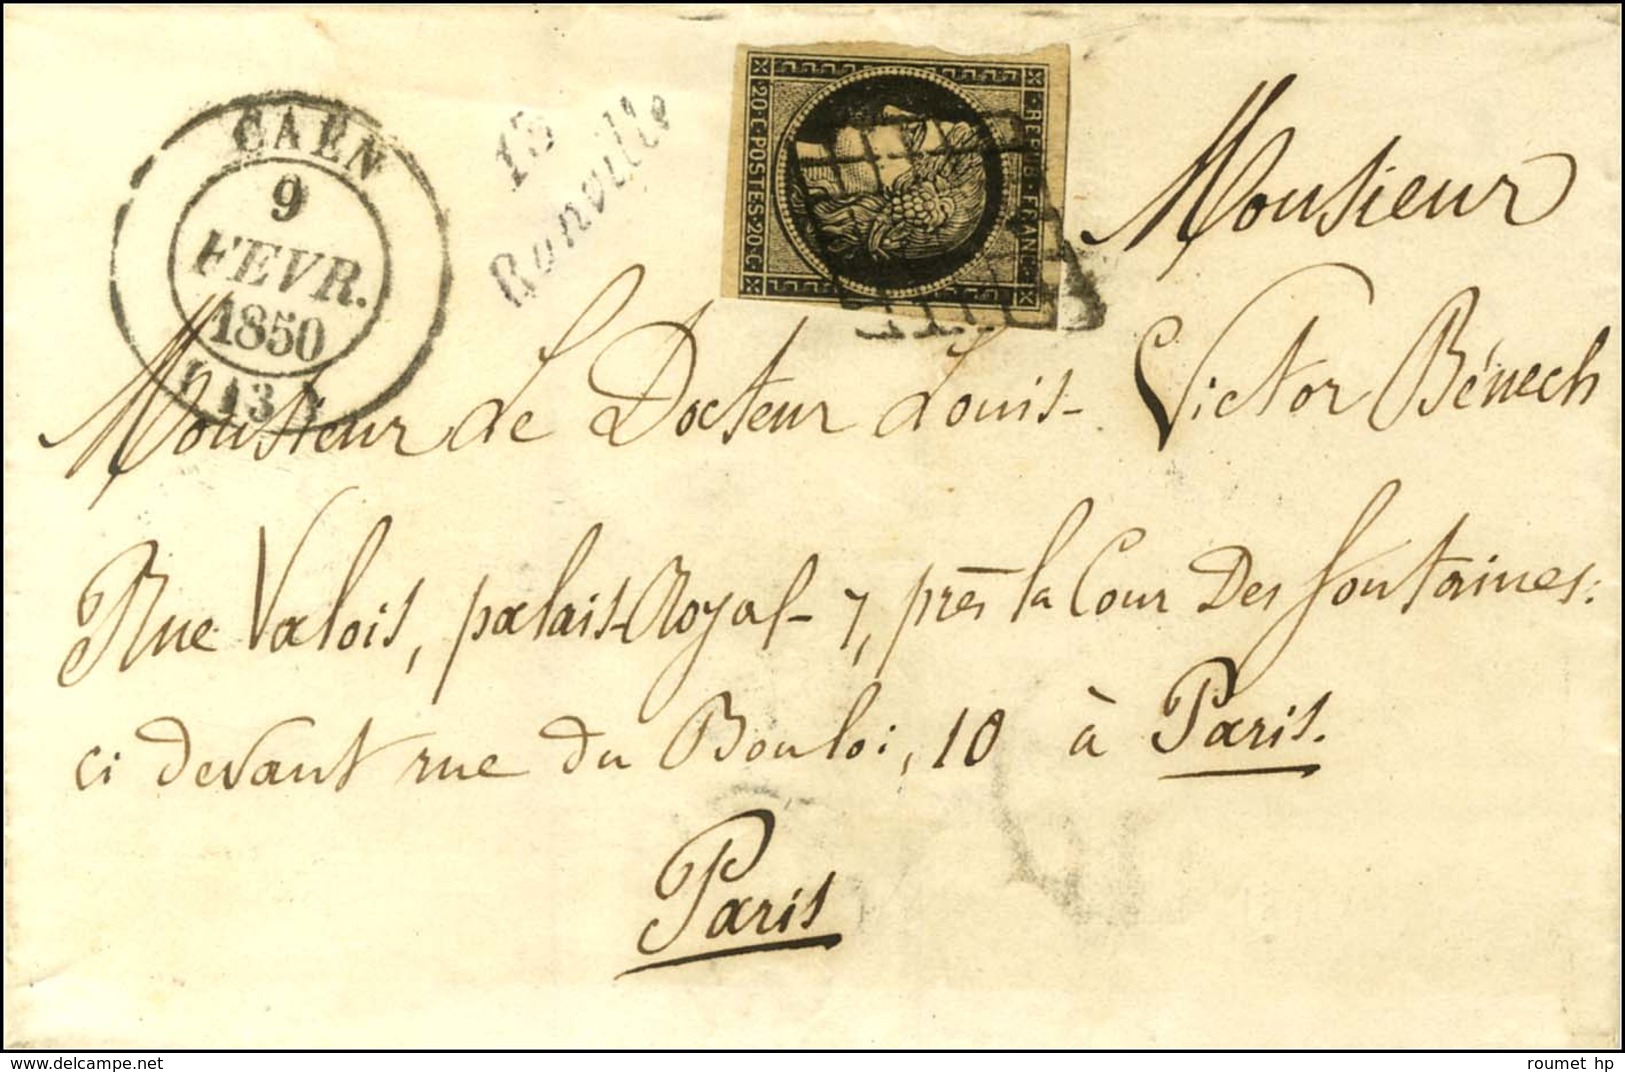 CAEN
9
FEVR.
1850
(13)
13
Ranville
REPUB. FRANC.
20.C. POSTES. 20.C
Monsieur
Monsieur Le Docteur Louis-Victor Bénech
Rue Valois, palais-Royal-7, près la Cour Des fontaines.
ci devant rue du Bouloi, 10 à Paris.
Paris
delcampe.net
roumet hp